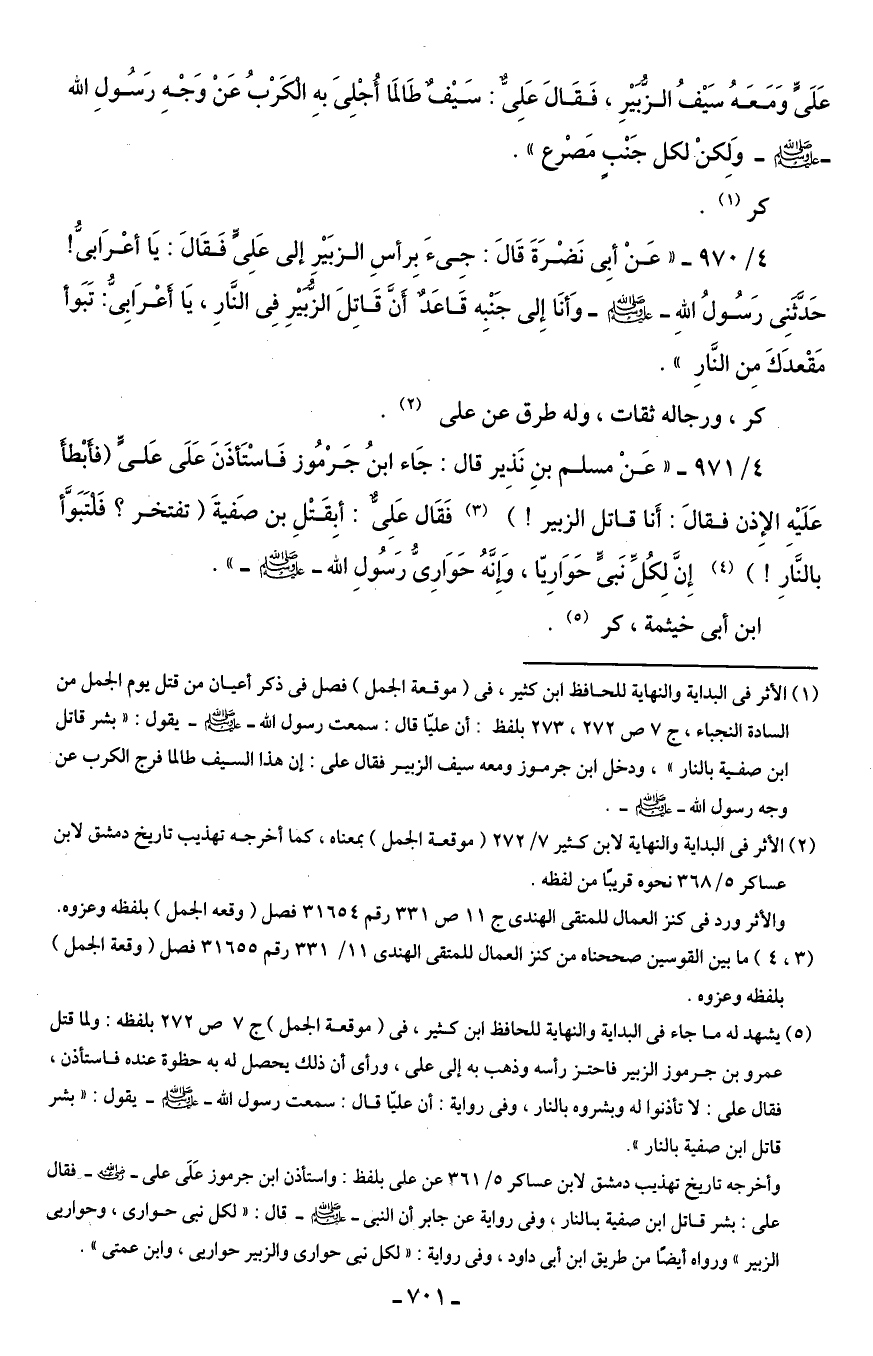 عَلَىٍّ وَمَعَهُ سَيْفُ الـزُّبَيْرِ ، فَـقَـالَ عَلِىٌّ : سَـيْفٌ طَالمَا أُجْلِىَ بِهِ الْكَرْبُ عَنْ وَجْـهِ رَسُـولِ الله
ـ ﷺ ـ وَلَكِنْ لكل جَنْبٍ مَصْرع » .
كر (١) .
٤/ ٩٧٠ ـ « عَـنْ أبى نَضْرَةَ قَالَ : جِىءَ بِرأس الـزبَيْرِ إلى عَلِىٍّ فَـقَالَ : يَا أعْـرَابىُّ !
حَدَّثَنِى رَسُـولُ اللهِ ـ ﷺ ـ وَأنَا إلى جَنْبِه قَـاعَدٌ أنَّ قَـاتِلَ الزُّبَيْرِ فِى النَّارِ ، يَا أَعْـرَابىُّ: تَبَوأ
مَقْعدَكَ مِن النَّارِ » .
كر ، ورجاله ثقات ، وله طرق عن على (٢) .
٤/ ٩٧١ ـ « عَـنْ مسلـم بنِ نَذير قال : جَاء ابنُ جَـرْمُوز فَـاسْتَأذَنَ عَلَى عَلـىٍّ (فأَبْطأَ
عَلَيْهِ الإذن فـقالَ : أنا قـاتل الزبير ! ) (٣) فَقَال عَلىٌّ : أبِقَـتْلِ بن صَفيةَ ( تفتخـر ؟ فَلْتَبَوَّأ
بالنَّارِ ! ) (٤) إنَّ لِكُلِّ نَبىٍّ حَوَارِيّا ، وَإنَّهُ حَوَارِىُّ رَسُولِ الله ـ ﷺ ـ » .
ابن أبى خيثمة ، كر (٥) .
(١) الأثر فى البداية والنهاية للحـافظ ابن كثير ، فى ( موقـعة الجمل ) فصل فى ذكر أعيـان من قتل يوم الجمل من
السادة النجباء ، ج ٧ ص ٢٧٢ ، ٢٧٣ بلفظ : أن عليّا قال : سمعت رسول الله ـ ﷺ ـ يقول : « بشر قاتل
ابن صفـية بالنار » ، ودخل ابن جرمـوز ومعه سيف الزبيـر فقال على : إن هذا السيف طالما فرج الكرب عن
وجه رسول الله ـ ﷺ ـ .
(٢) الأثر فى البداية والنهاية لابن كـثير ٧/ ٢٧٢ ( موقعـة الجمل ) بمعناه ، كمـا أخرجـه تهذيب تاريخ دمشق لابن
عساكر ٥/ ٣٦٨ نحوه قريبًا من لفظه .
والأثر ورد فى كنز العمال للمتقى الهندى ج ١١ ص ٣٣١ رقم ٣١٦٥٤ فصل ( وقعه الجمل ) بلفظه وعزوه.
(٣ ، ٤ ) ما بين القوسين صححناه من كنز العمال للمتقى الهندى ١١/ ٣٣١ رقم ٣١٦٥٥ فصل ( وقعة الجمل )
بلفظه وعزوه .
(٥) يشهد له مـا جاء فى البداية والنهاية للحافظ ابن كـثير ، فى ( موقعـة الجمل ) ج ٧ ص ٢٧٢ بلفظه : ولما قتل
عمرو بن جـرموز الزبير فاحتـز رأسه وذهب به إلى على ، ورأى أن ذلك يحصل له به حظوة عنده فـاستأذن ،
فقال على : لا تأذنوا له وبشروه بالنار ، وفى رواية : أن عليّا قال : سمعت رسول الله ـ ﷺ ـ يقول : « بشر
قاتل ابن صفية بالنار ».
وأخرجه تاريخ تهذيب دمشق لابن عساكر ٥/ ٣٦١ عن على بلفظ : واستأذن ابن جرموز علَى على ـ رضي الله عنه ـ فقال
على : بشر قـاتل ابن صفية بـالنار ، وفى رواية عن جابر أن النبى ـ ﷺ ـ قال : « لكل نبى حوارى ، وحواريى
الزبير » ورواه أيضًا من طريق ابن أبى داود ، وفى رواية : « لكل نبى حوارى والزبير حواريى ، وابن عمتى » .
ـ ٧٠١ ـ